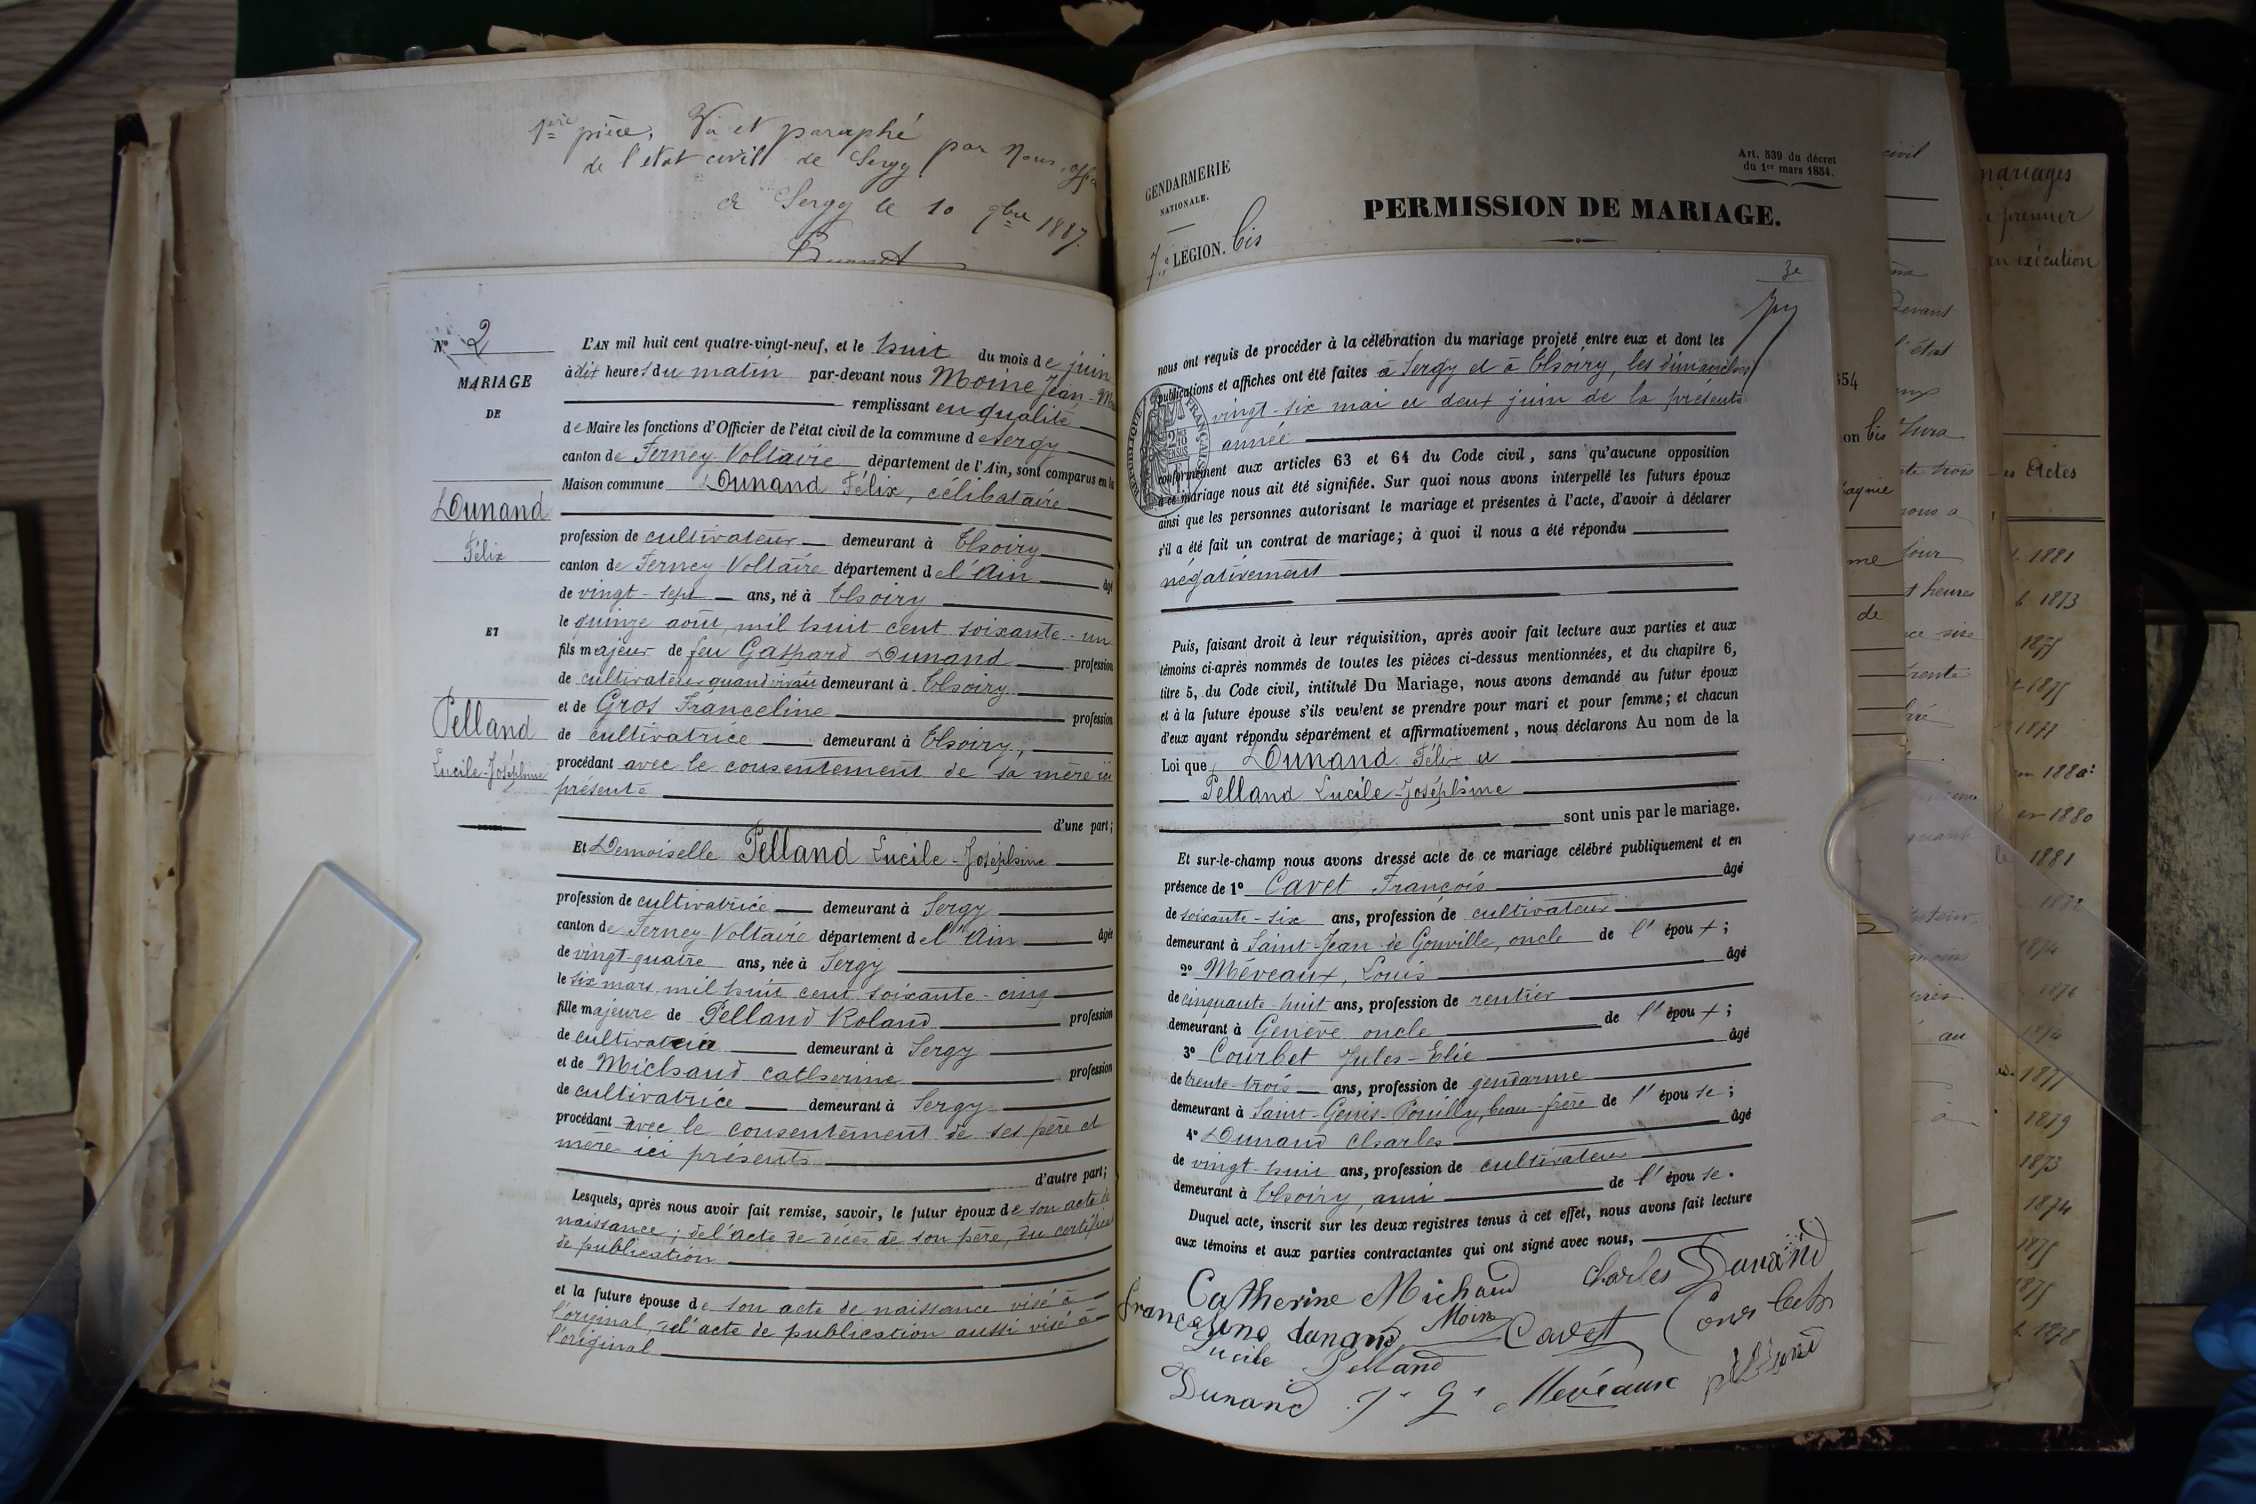 1ère pièce. Vu et paraphé par Nous, off
de l'état civil de Sergy
à Sergy le 10 9bre 1887.
GENDARMERIE
NATIONALE.
7e LÉGION. bis
Art. 539 du décret
du 1er mars 1854.
PERMISSION DE MARIAGE.
No 2
MARIAGE
DE
Dunand
Félix
ET
Pelland
Lucile-Joséphine
L'AN mil huit cent quatre-vingt-neuf, et le huit du mois de juin
à dix heures du matin par-devant nous Moine Jean-M
remplissant en qualité
de Maire les fonctions d'Officier de l'état civil de la commune de Sergy
canton de Ferney-Voltaire département de l'Ain, sont comparus en la
Maison commune Dunand Félix, célibataire
profession de cultivateur demeurant à Thoiry
canton de Ferney Voltaire département de l'Ain âgé
de vingt-sept ans, né à Thoiry
le quinze août, mil huit cent soixante-un
fils majeur de feu Gaspard Dunand profession
de cultivateur quand vivait demeurant à Thoiry
et de Gros Franceline profession
de cultivatrice demeurant à Thoiry,
procédant avec le consentement de sa mère ici
présente
d'une part;
Et Demoiselle Pelland Lucile-Joséphine
profession de cultivatrice demeurant à Sergy
canton de Ferney-Voltaire département de l'Ain âgée
de vingt-quatre ans, née à Sergy
le six mars mil huit cent soixante-cinq
fille majeure de Pelland Roland profession
de cultivateur demeurant à Sergy
et de Michaud Catherine profession
de cultivatrice demeurant à Sergy
procédant avec le consentement de ses père et
mère ici présents
d'autre part;
Lesquels, après nous avoir fait remise, savoir, le futur époux de son acte de
naissance; de l'acte de décès de son père, du certificat
de publication
et la future épouse de son acte de naissance visé à
l'original, et l'acte de publication aussi visé à
l'original
3e
nous ont requis de procéder à la célébration du mariage projeté entre eux et dont les
publications et affiches ont été faites à Sergy et à Thoiry, les dimanches
vingt-six mai et deux juin de la présente
année
conformément aux articles 63 et 64 du Code civil, sans qu'aucune opposition
à ce mariage nous ait été signifiée. Sur quoi nous avons interpellé les futurs époux
ainsi que les personnes autorisant le mariage et présentes à l'acte, d'avoir à déclarer
s'il a été fait un contrat de mariage; à quoi il nous a été répondu
négativement
Puis, faisant droit à leur réquisition, après avoir fait lecture aux parties et aux
témoins ci-après nommés de toutes les pièces ci-dessus mentionnées, et du chapitre 6,
titre 5, du Code civil, intitulé Du Mariage, nous avons demandé au futur époux
et à la future épouse s'ils veulent se prendre pour mari et pour femme; et chacun
d'eux ayant répondu séparément et affirmativement, nous déclarons Au nom de la
Loi que Dunand Félix et
Pelland Lucile-Joséphine
sont unis par le mariage.
Et sur-le-champ nous avons dressé acte de ce mariage célébré publiquement et en
présence de 1o Cavet François âgé
de soixante-six ans, profession de cultivateur
demeurant à Saint-Jean de Gonville, oncle de l'époux;
2o Méveaux, Louis âgé
de cinquante-huit ans, profession de rentier
demeurant à Genève oncle de l'époux;
3o Courbet Jules-Elie âgé
de trente-trois ans, profession de gendarme
demeurant à Saint-Genis-Pouilly, beau-frère de l'épouse;
4o Dunand Charles âgé
de vingt-huit ans, profession de cultivateur
demeurant à Thoiry, ami de l'épouse.
Duquel acte, inscrit sur les deux registres tenus à cet effet, nous avons fait lecture
aux témoins et aux parties contractantes qui ont signé avec nous,
Catherine Michaud Charles Dunand
dunand Moine Cavet Courbet
Lucile Pelland
Dunand Mevéaux
civil
mariages
premier
en exécution
Devant
l'état
354
on bis Jura
Actes
1881
me
heures
1873
de
1877
1875
1877
en 1880
1881
1874
1876
au
1877
1879
1873
1874
1875
1878